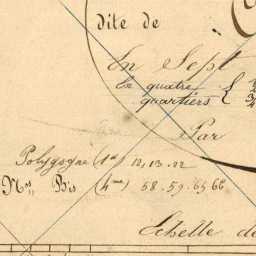 dite de
En Sept
En quatre
quartiers
Par
Polygone (1er) 12, 13. 22
Nos Bis (4me) 58. 59. 65 66
Echelle de